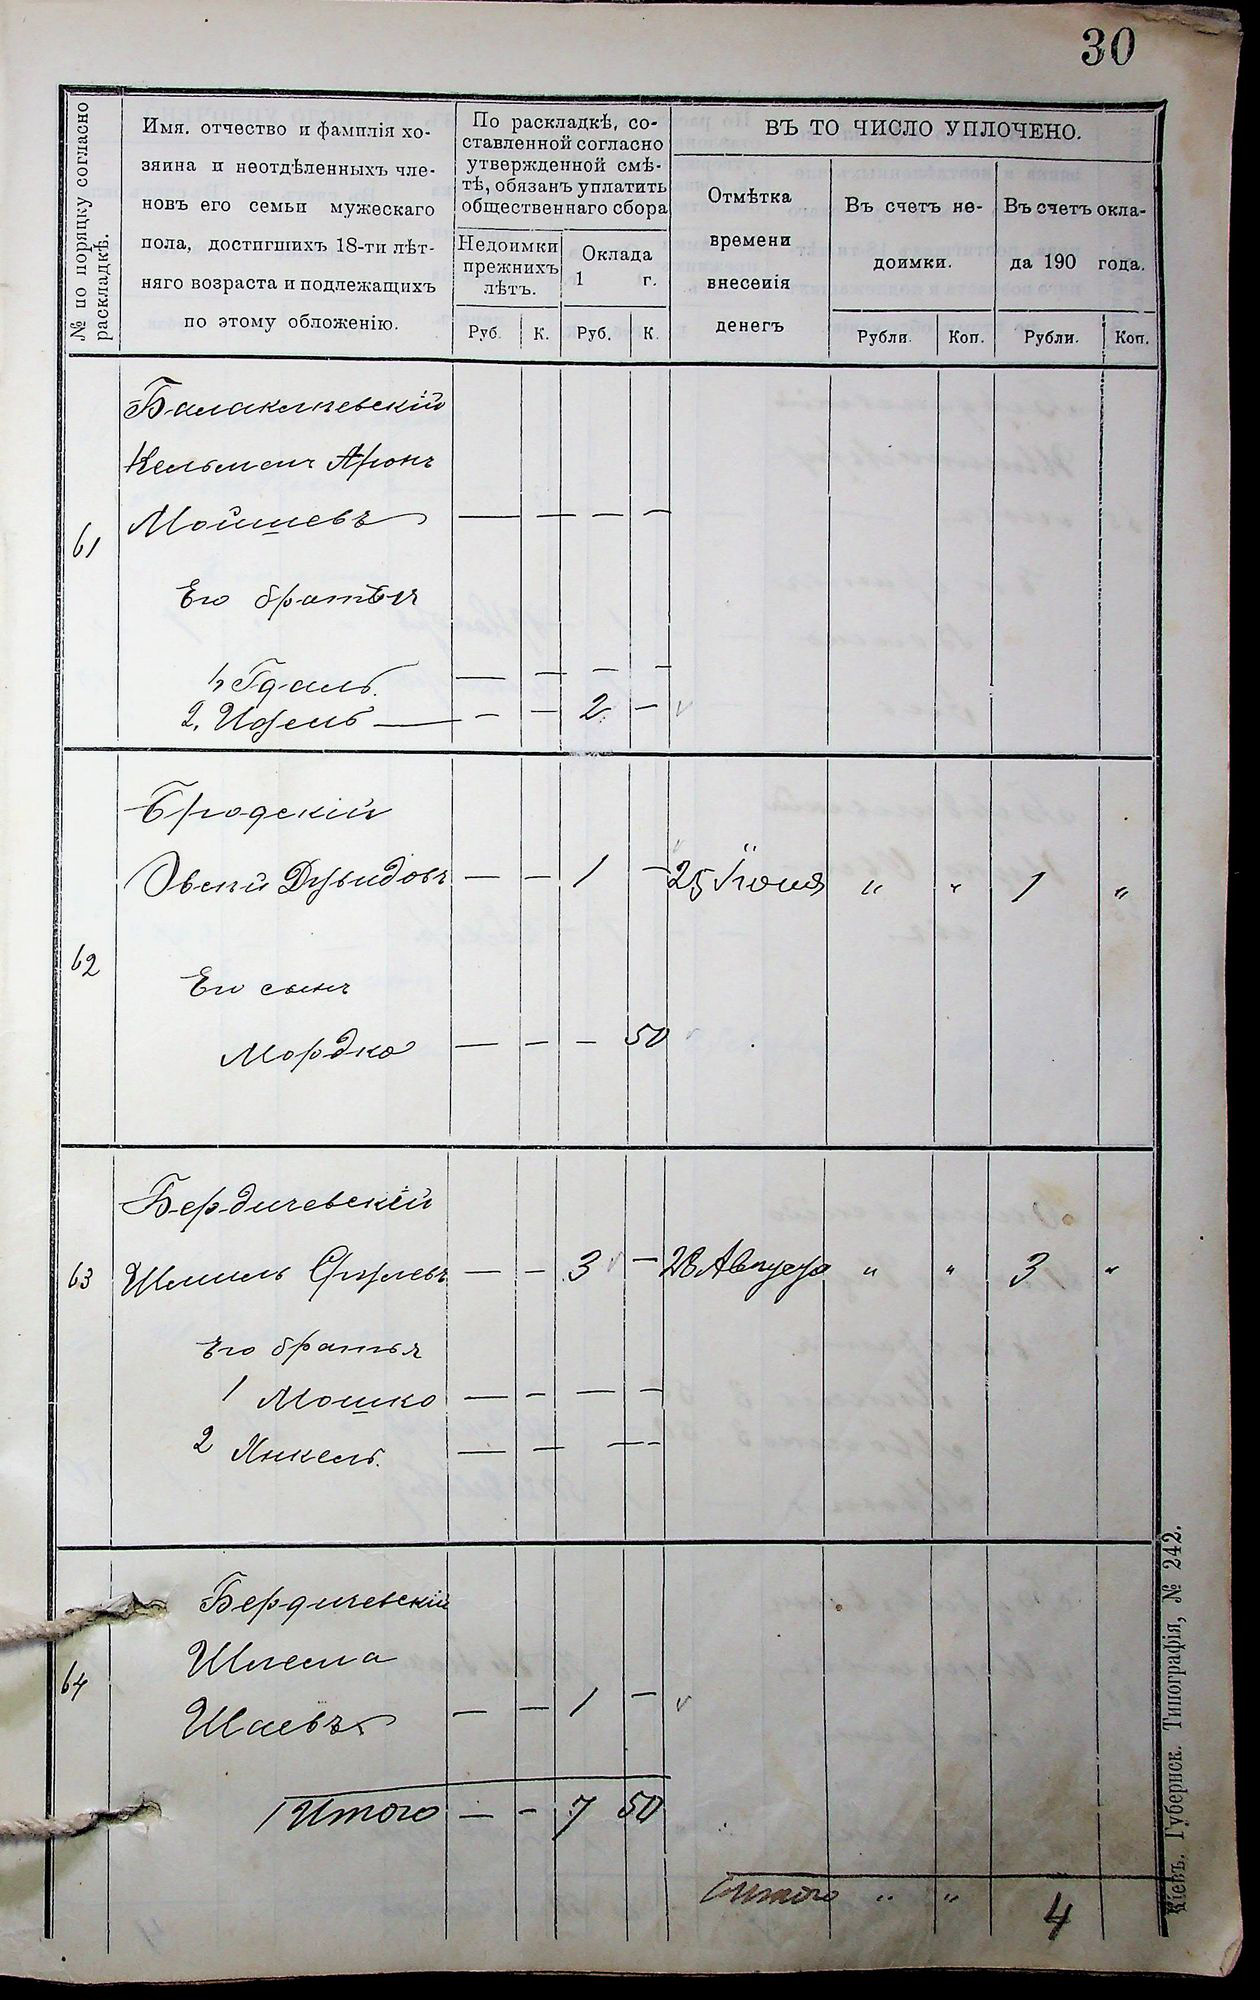 30
№ по порядку согласно раскладкѣ.
Имя, отчество и фамилія хо-
зяина и неотдѣленныхъ чле-
новъ его семьи мужескаго
пола, достигшихъ 18-ти лѣт-
няго возраста и подлежащихъ
по этому обложенію.
По раскладкѣ, со-
ставленной согласно
утвержденной смѣ-
тѣ, обязанъ уплатить
общественнаго сбора
Недоимки
прежнихъ
лѣтъ.
Оклада
1 г.
Руб. К. Руб. К.
ВЪ ТО ЧИСЛО УПЛОЧЕНО.
Отмѣтка
времени
внесенія
денегъ
Въ счетъ не-
доимки.
Въ счетъ окла-
да 190 года.
Рубли. Коп. Рубли. Коп.
61
Балаклиевскій
Кельман Аронъ
Мойшевъ — — — —
Его братья
1, Гдаль. — — — —
2, Иосель — — — 2 —
62
Бродскій
Овсей Дувидовъ — — 1 — 25 Іюня " " 1 "
Его сынъ
Мордко — — — 50
63
Бердичевскій
Шмиль Сруліевъ — — 3 — 28 Августа " " 3 "
Его братья
1 Мошко — — — —
2 Янкель. — — — —
64
Бердичевскій
Шлема
Шаевъ — — 1 —
Итого — — 7 50
Итого " " 4
Кіевъ. Губернск. Типографія, № 242.